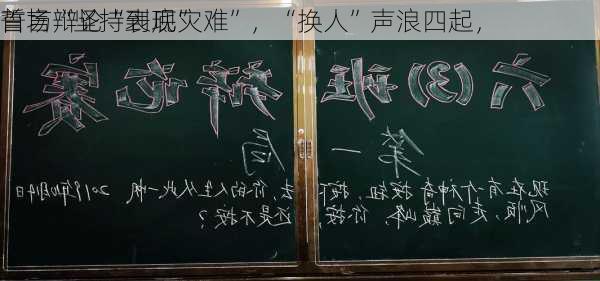 首场辩论“表现灾难”，“换人”声浪四起，
六(3)班 辩论赛
第一局
现在有一个神奇按钮，按下去，你的人生从此一帆 2019年10月14日
风顺，走向巅峰，你按，还是不按？